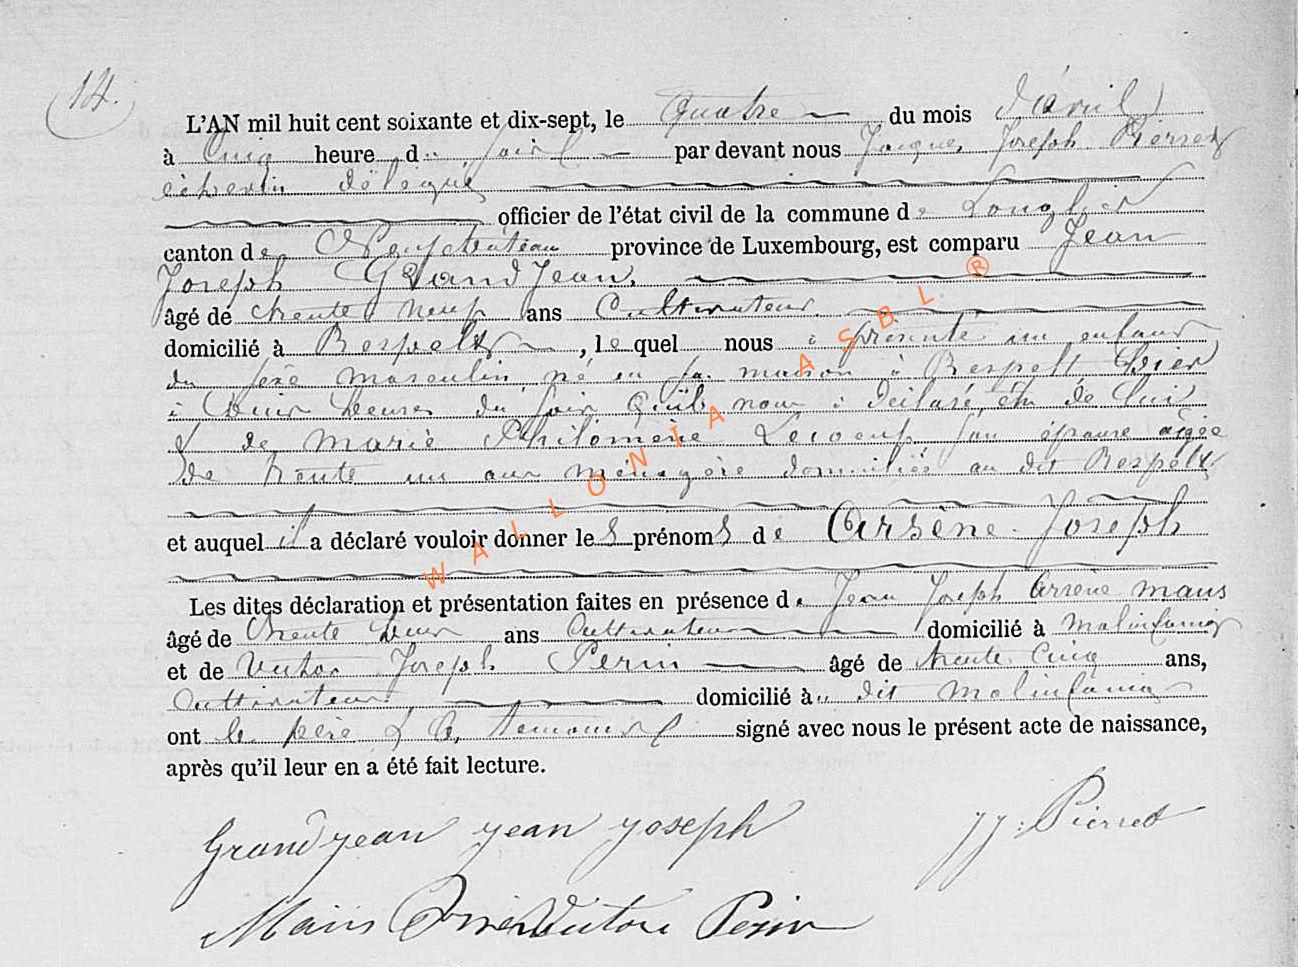 14.
L'AN mil huit cent soixante et dix-sept, le quatre du mois d'avril
à cinq heure du soir par devant nous Jacques Joseph Pierret
échevin délégué
officier de l'état civil de la commune de Longlier
canton de Neufchâteau province de Luxembourg, est comparu Jean
Joseph Grandjean,
âgé de trente neuf ans Cultivateur
domicilié à Respelt, lequel nous a présenté un enfant
du sexe masculin, né en sa maison à Respelt hier
à huit heures du soir qu'il nous a déclaré être de lui
& de Marie Philomène Lecoeuf son épouse âgée
de trente un ans ménagère domiciliée au dit Respelt
et auquel il a déclaré vouloir donner les prénoms de Arsène Joseph
Les dites déclaration et présentation faites en présence de Jean Joseph Arsène Maus
âgé de trente deux ans Cultivateur domicilié à Molinfaing
et de Victor Joseph Perin âgé de trente cinq ans,
Cultivateur domicilié à u dit Molinfaing
ont le père & les témoins signé avec nous le présent acte de naissance,
après qu'il leur en a été fait lecture.
Grandjean jean joseph JJ: Pierret
Victore Perin
WALLONIA ASBL ®